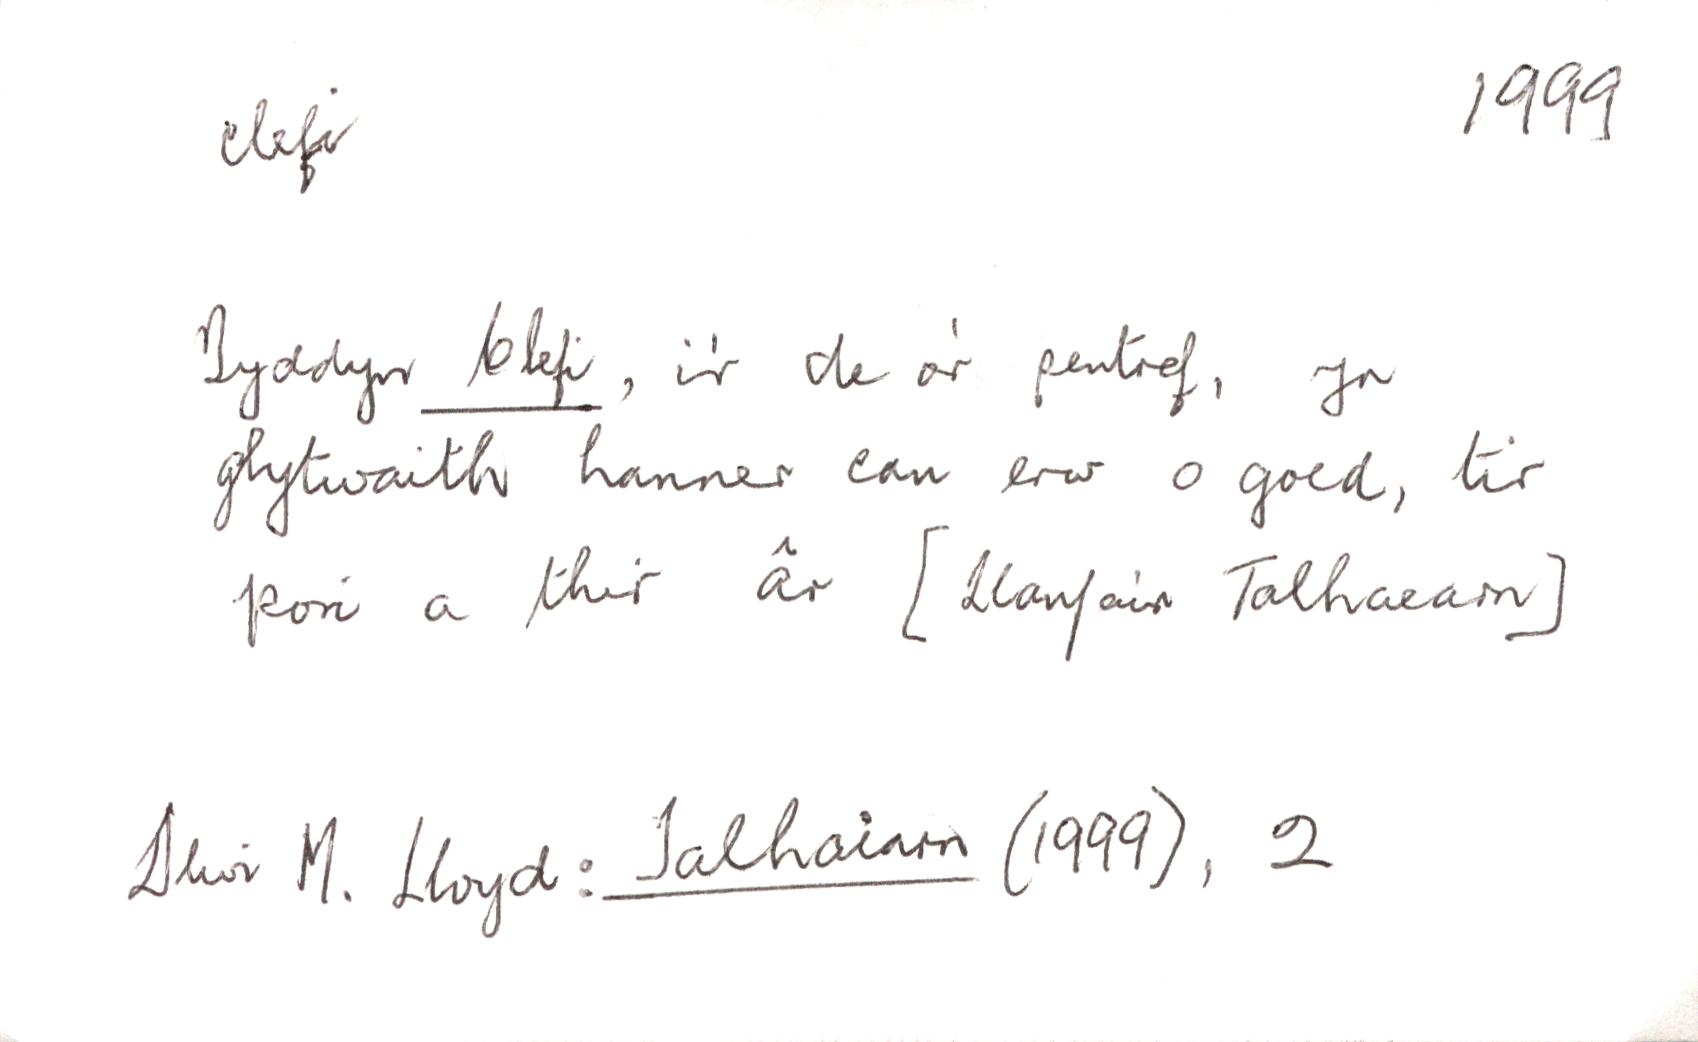 clefi 1999
Tyddyn Clefi, i'r de o'r pentref, yn
glytwaith hanner can erw o goed, tir
pori a thir âr [Llanfair Talhaearn]
M. Lloyd: Talhaiarn (1999), 2